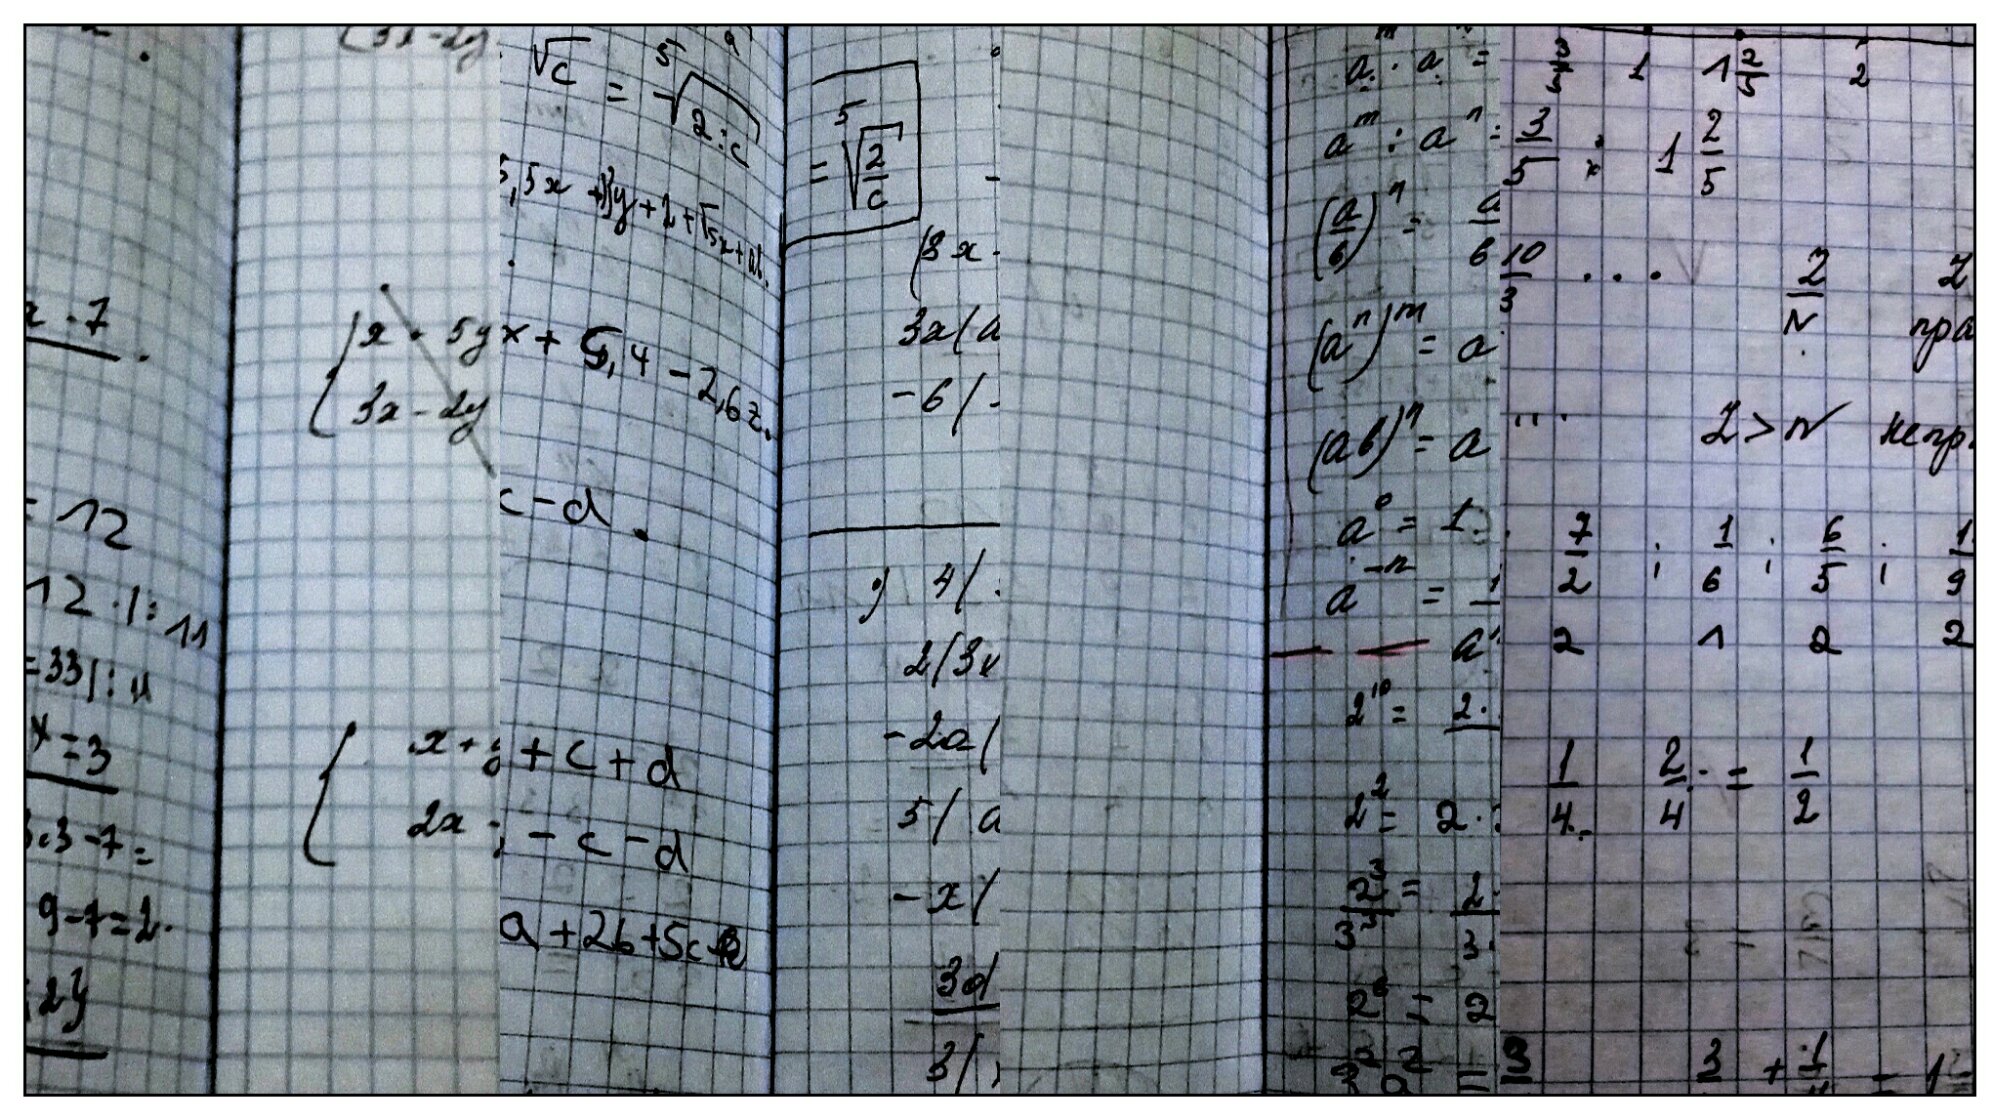 x - 7
= 12
12 · | : 11
= 33 | : 11
x = 3
3·3 - 7 =
9 - 7 = 2.
2y
(3x - 2y
x · 5y
3x - 2y
x + y
2x
√c = ⁵√2:c
5,5x + 3y + 2 +
x + 5,4 - 2,6z.
c - d.
+ c + d
- c - d
a + 2b + 5c
= ⁵√(2/c)
(8x -
3x(a
-6(-
) 4(
2(3x
-2a(
5(a
-x(
3d
3(
aᵐ · aⁿ =
aᵐ : aⁿ =
(a/b)ⁿ = a/b
(aⁿ)ᵐ = a
(ab)ⁿ = a
a⁰ = 1.
a⁻ⁿ = 1
a
2¹⁰ = 2·
2² = 2·
2³/3³ = 2·/3·
2⁶ = 2
3/5 1 1 2/5 2
3/5 : 1 2/5
10/3 ... Z/N Z
пра
Z > N непр.
7/2 ; 1/6 ; 6/5 ; 1/9
2 1 2 2
1/4 2/4 = 1/2
3 3 + 1/4 = 1